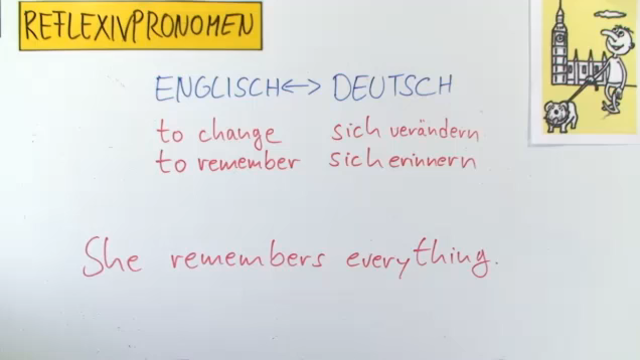 REFLEXIVPRONOMEN
ENGLISCH <-> DEUTSCH
to change sich verändern
to remember sich erinnern
She remembers everything.